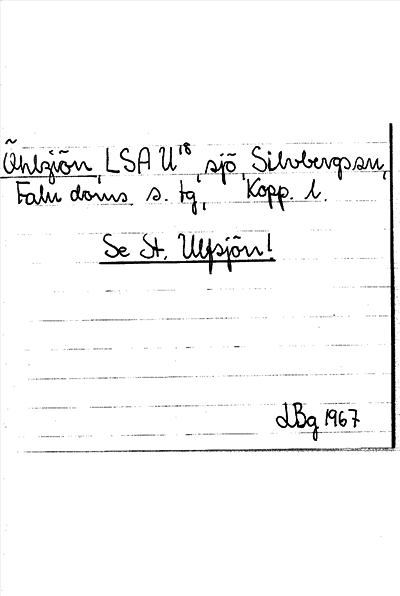 Öhlziön, LSA U¹⁸, sjö, Silvbergs sn,
Falu doms. s. tg, Kopp. l.
Se St. Ulfsjön!
LBg 1967